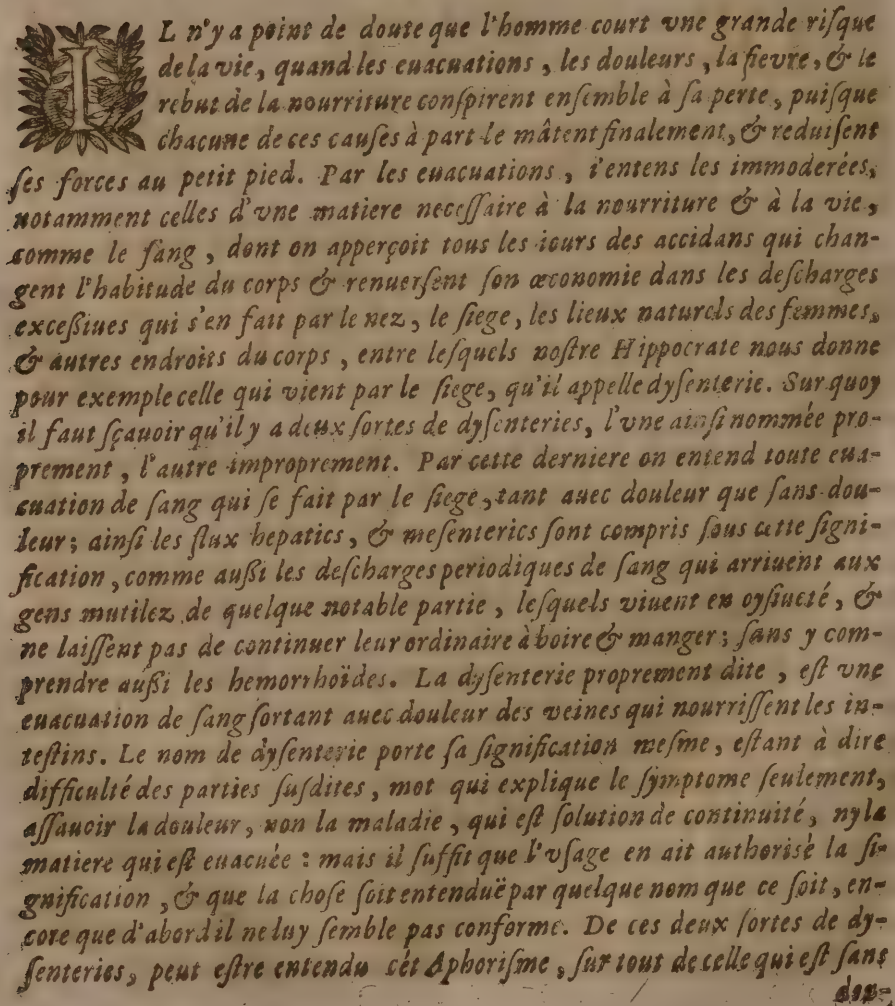 IL n'y a point de doute que l'homme court vne grande riſque
de la vie, quand les euacuations, les douleurs, la fievre, & le
rebut de la nourriture conſpirent enſemble à ſa perte, puiſque
chacune de ces cauſes à part le mâtent finalement, & reduiſent
ſes forces au petit pied. Par les euacuations, i'entens les immoderées,
notamment celles d'vne matiere neceſſaire à la nourriture & à la vie,
comme le ſang, dont on apperçoit tous les iours des accidans qui chan-
gent l'habitude du corps & renuerſent ſon œconomie dans les deſcharges
exceßiues qui s'en fait par le nez, le ſiege, les lieux naturels des femmes,
& autres endroits du corps, entre leſquels noſtre Hippocrate nous donne
pour exemple celle qui vient par le ſiege, qu'il appelle dyſenterie. Sur quoy
il faut ſçauoir qu'il y a deux ſortes de dyſenteries, l'vne ainſi nommée pro-
prement, l'autre improprement. Par cette derniere on entend toute eua-
cuation de ſang qui ſe fait par le ſiege, tant auec douleur que ſans dou-
leur; ainſi les flux hepatics, & meſenterics ſont compris ſous cette ſigni-
fication, comme außi les deſcharges periodiques de ſang qui arriuent aux
gens mutilez de quelque notable partie, leſquels viuent en oyſiueté, &
ne laiſſent pas de continuer leur ordinaire à boire & manger; ſans y com-
prendre außi les hemorrhoïdes. La dyſenterie proprement dite, eſt vne
euacuation de ſang ſortant auec douleur des veines qui nourriſſent les in-
teſtins. Le nom de dyſenterie porte ſa ſignification meſme, eſtant à dire
difficulté des parties ſuſdites, mot qui explique le ſymptome ſeulement,
aſſauoir la douleur, non la maladie, qui eſt ſolution de continuité, ny la
matiere qui eſt euacuée: mais il ſuffit que l'vſage en ait authorisé la ſi-
gnification, & que la choſe ſoit entenduë par quelque nom que ce ſoit, en-
core que d'abord il ne luy ſemble pas conforme. De ces deux ſortes de dy-
ſenteries, peut eſtre entendu cét Aphoriſme, ſur tout de celle qui eſt ſans
dou-